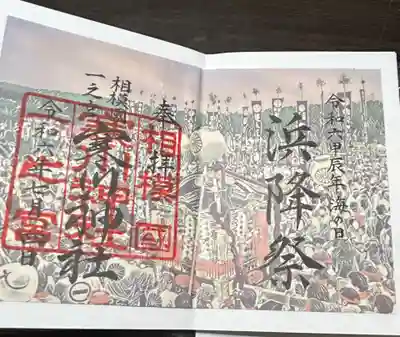 令和六甲辰年 海の日
浜降祭
奉拝
相模國
一之宮
寒川神社
令和六年七月 日
相模國